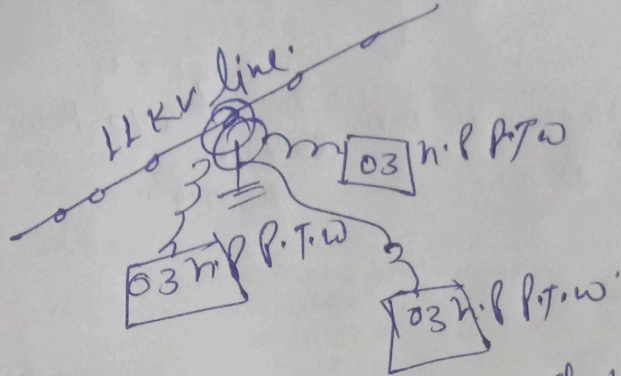 11 KV line.
03 h.P P.T.W
03 h.P P.T.W
03 h.P P.T.W